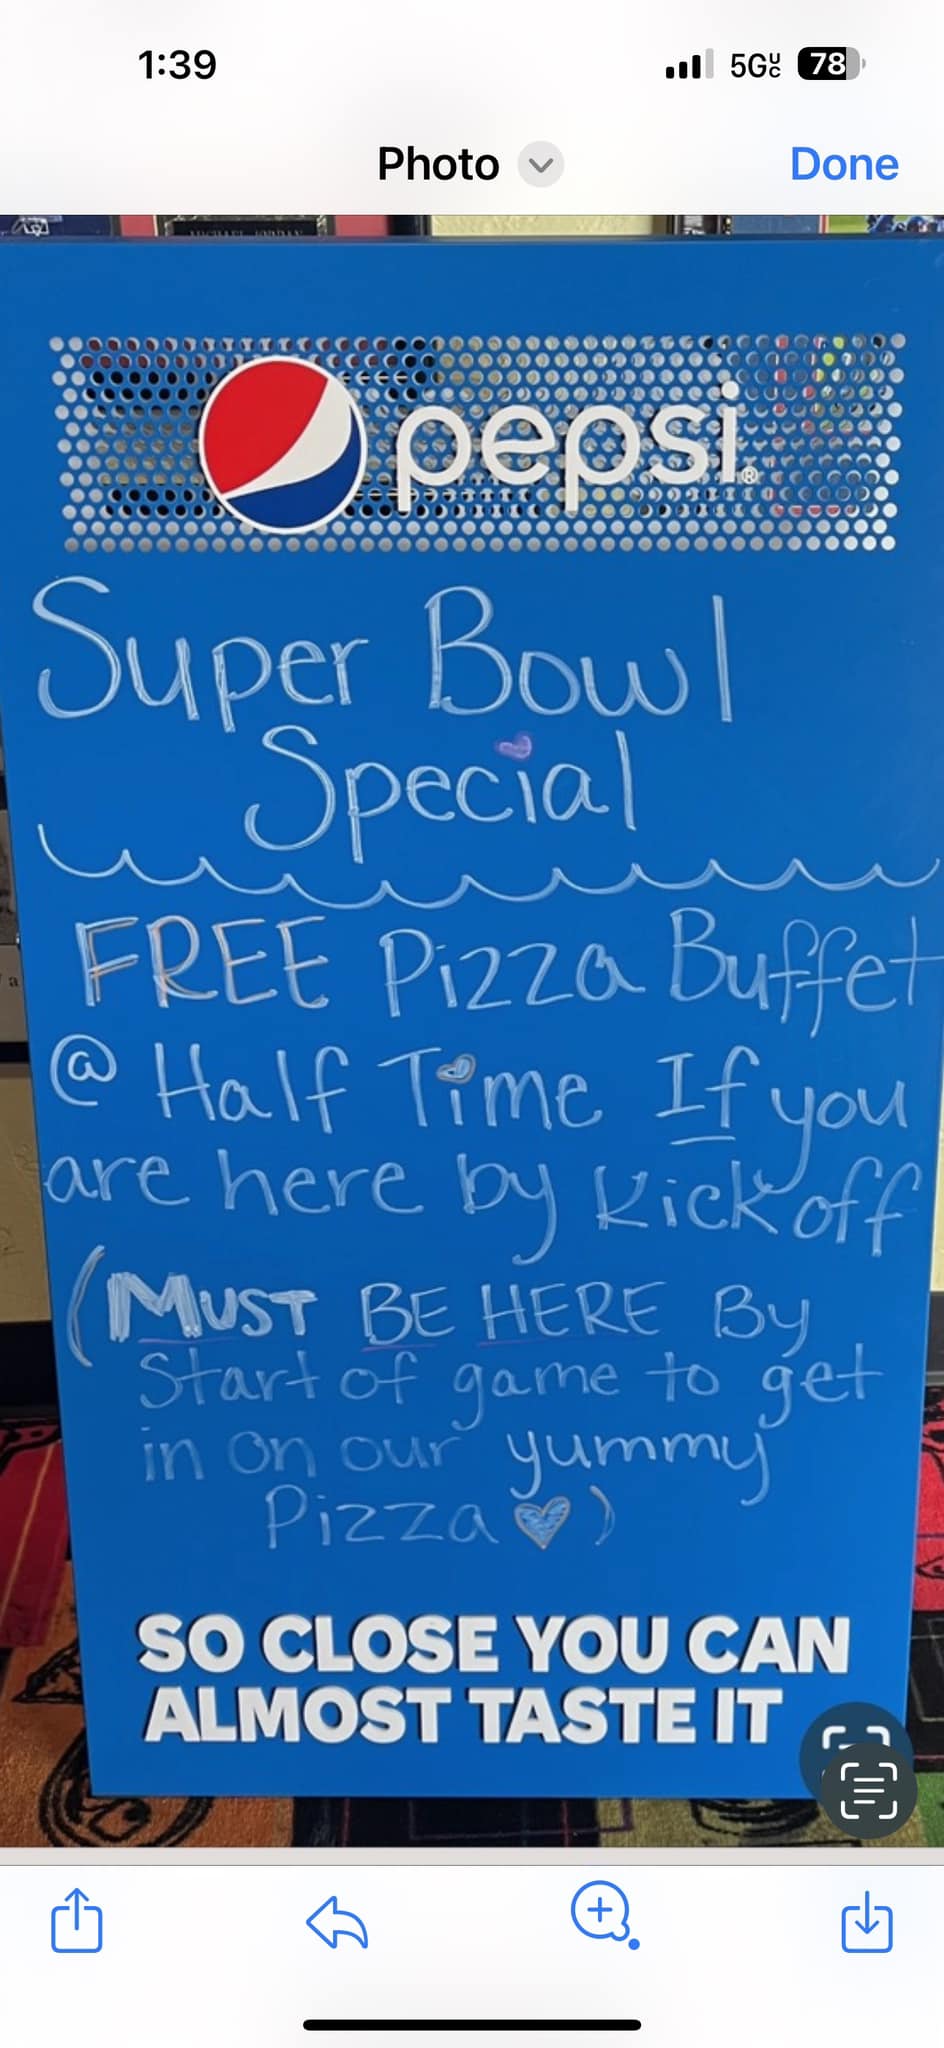 1:39
5G UC
78
Photo
Done
MICHAEL JORDAN
pepsi®
Super Bowl
Special
FREE Pizza Buffet
@ Half Time If you
are here by Kick off
(MUST BE HERE By
Start of game to get
in on our yummy
Pizza♡)
SO CLOSE YOU CAN
ALMOST TASTE IT